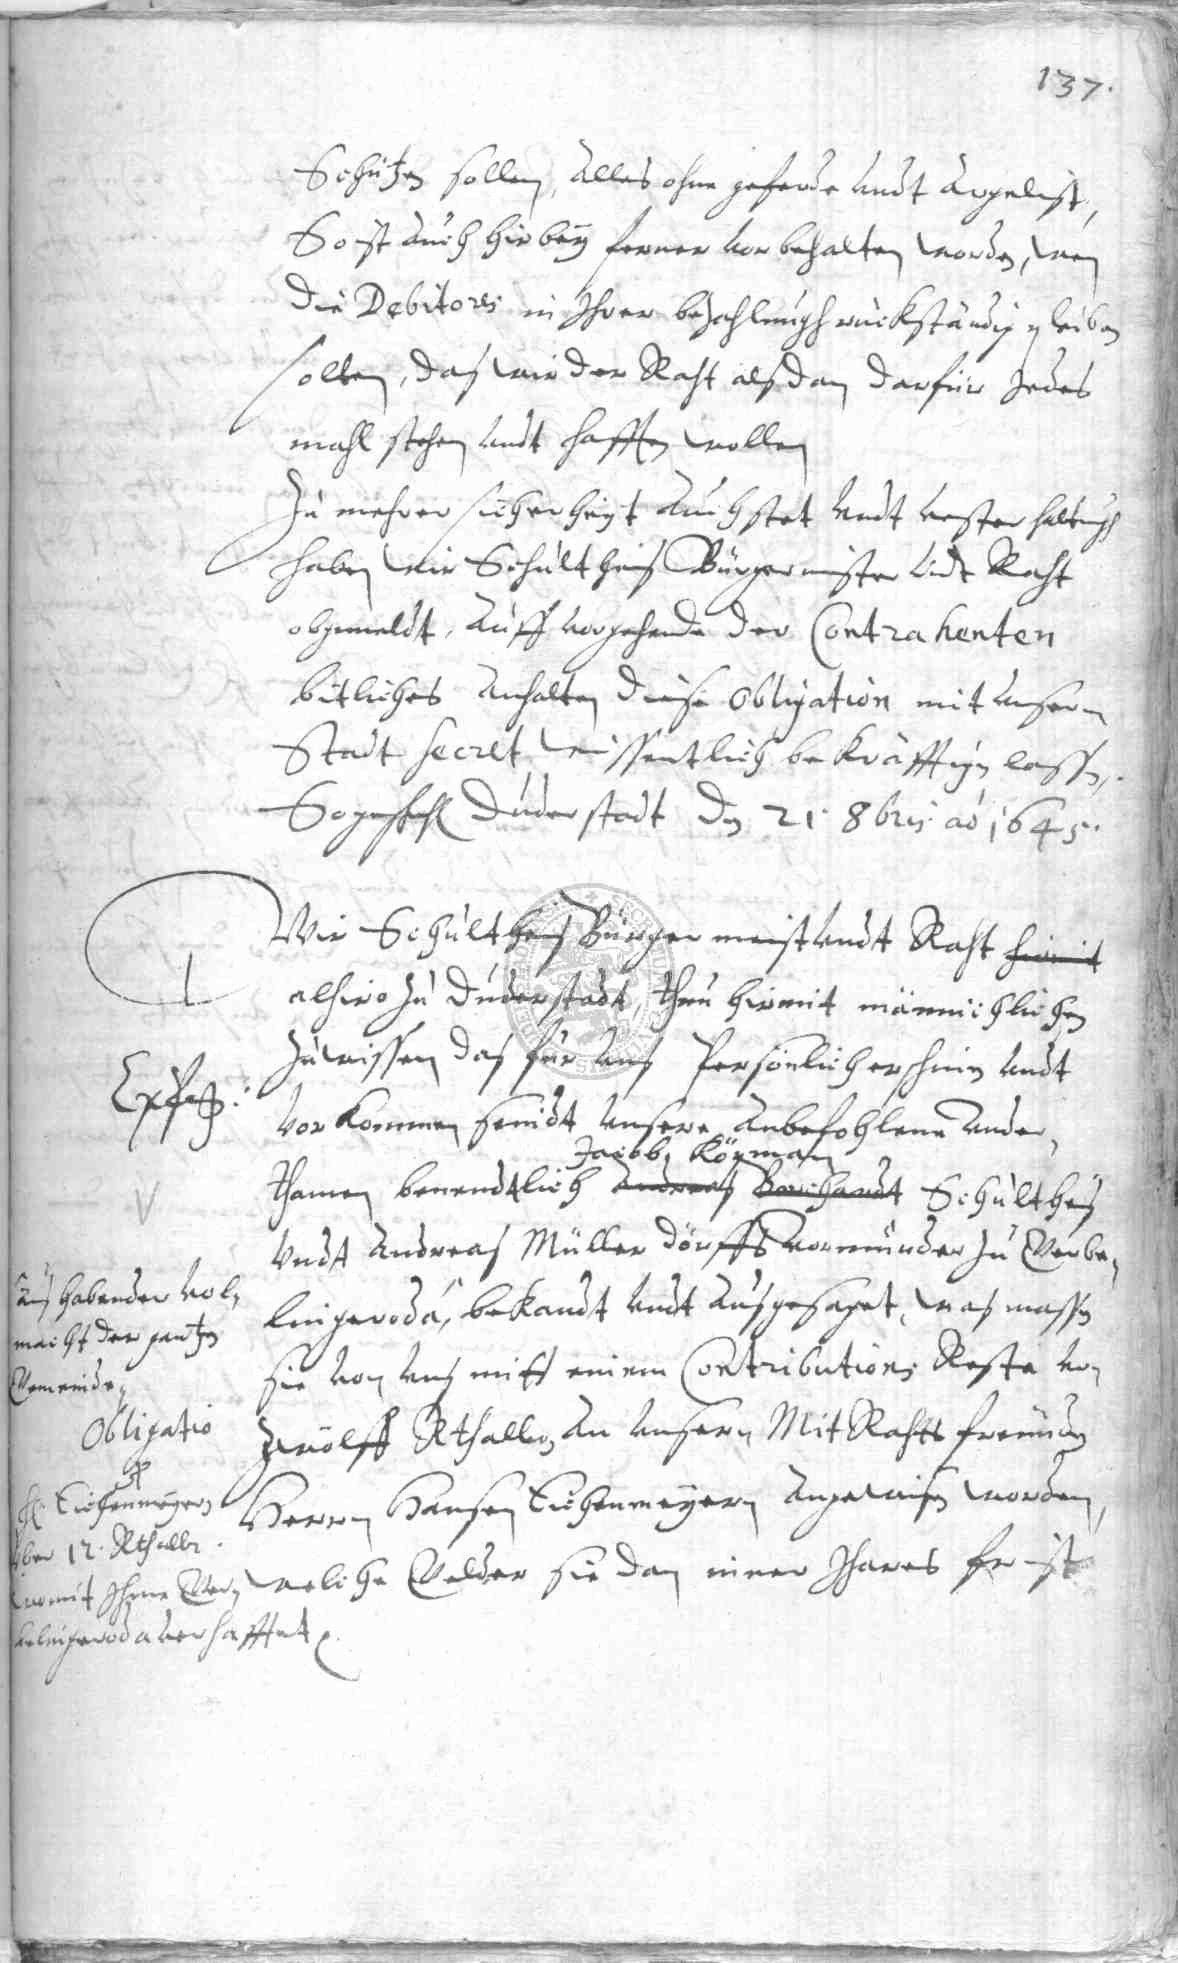 137.
Schützen sollen, Alles ohne geferde undt Argelist,
So ist auch hirbey ferner vorbehalten worden, wen
die Debitores in Ihrer bezahlungh rückständig pleiben
solten, das wir der Raht alsdan darfür Jedes
mahl stehen undt hafften wollen
Zu mehrer sicherheyt Auch stet undt vester haltungh
haben wir Schultheis Bürgermeister undt Raht
obgemeldt, Auff vorgehende der Contrahenten
bitliches Anhalten diese Obligation mit unserm
Stadt Secret wissentlich bekräfftigen lassen,
So geschehen Duderstadt den 21. 8bris ao 1645.
Wir Schultheis Bürgermeist undt Raht hirmit
alhiro zu Duderstadt, thun hirmit männichlichen
zuwissen das für uns Persönlich erschinen undt
vorkommen seindt unsere Anbefohlene Under,
Jacobb Körman
thanen benendtlich Andreas Borchardt Schultheis
undt Andreas Müller dorffs vormünder zu Werbe,
lingeroda, bekandt undt Ausgesaget, was massen
sie von uns mitt einem Contributions Resta von
zwölff Rthaller An unsern Mit Rahts freundt
Herrn Hansen Eichenmeyern Angewisen worden,
weliche Gelder sie dan inner Jhares frist
Aus habender vol,
macht der gantzen
Gemeinde
Obligatio
H. Eichenmeyern
über 12. Rthaller
womit Ihme Wer,
belingeroda verhafftet